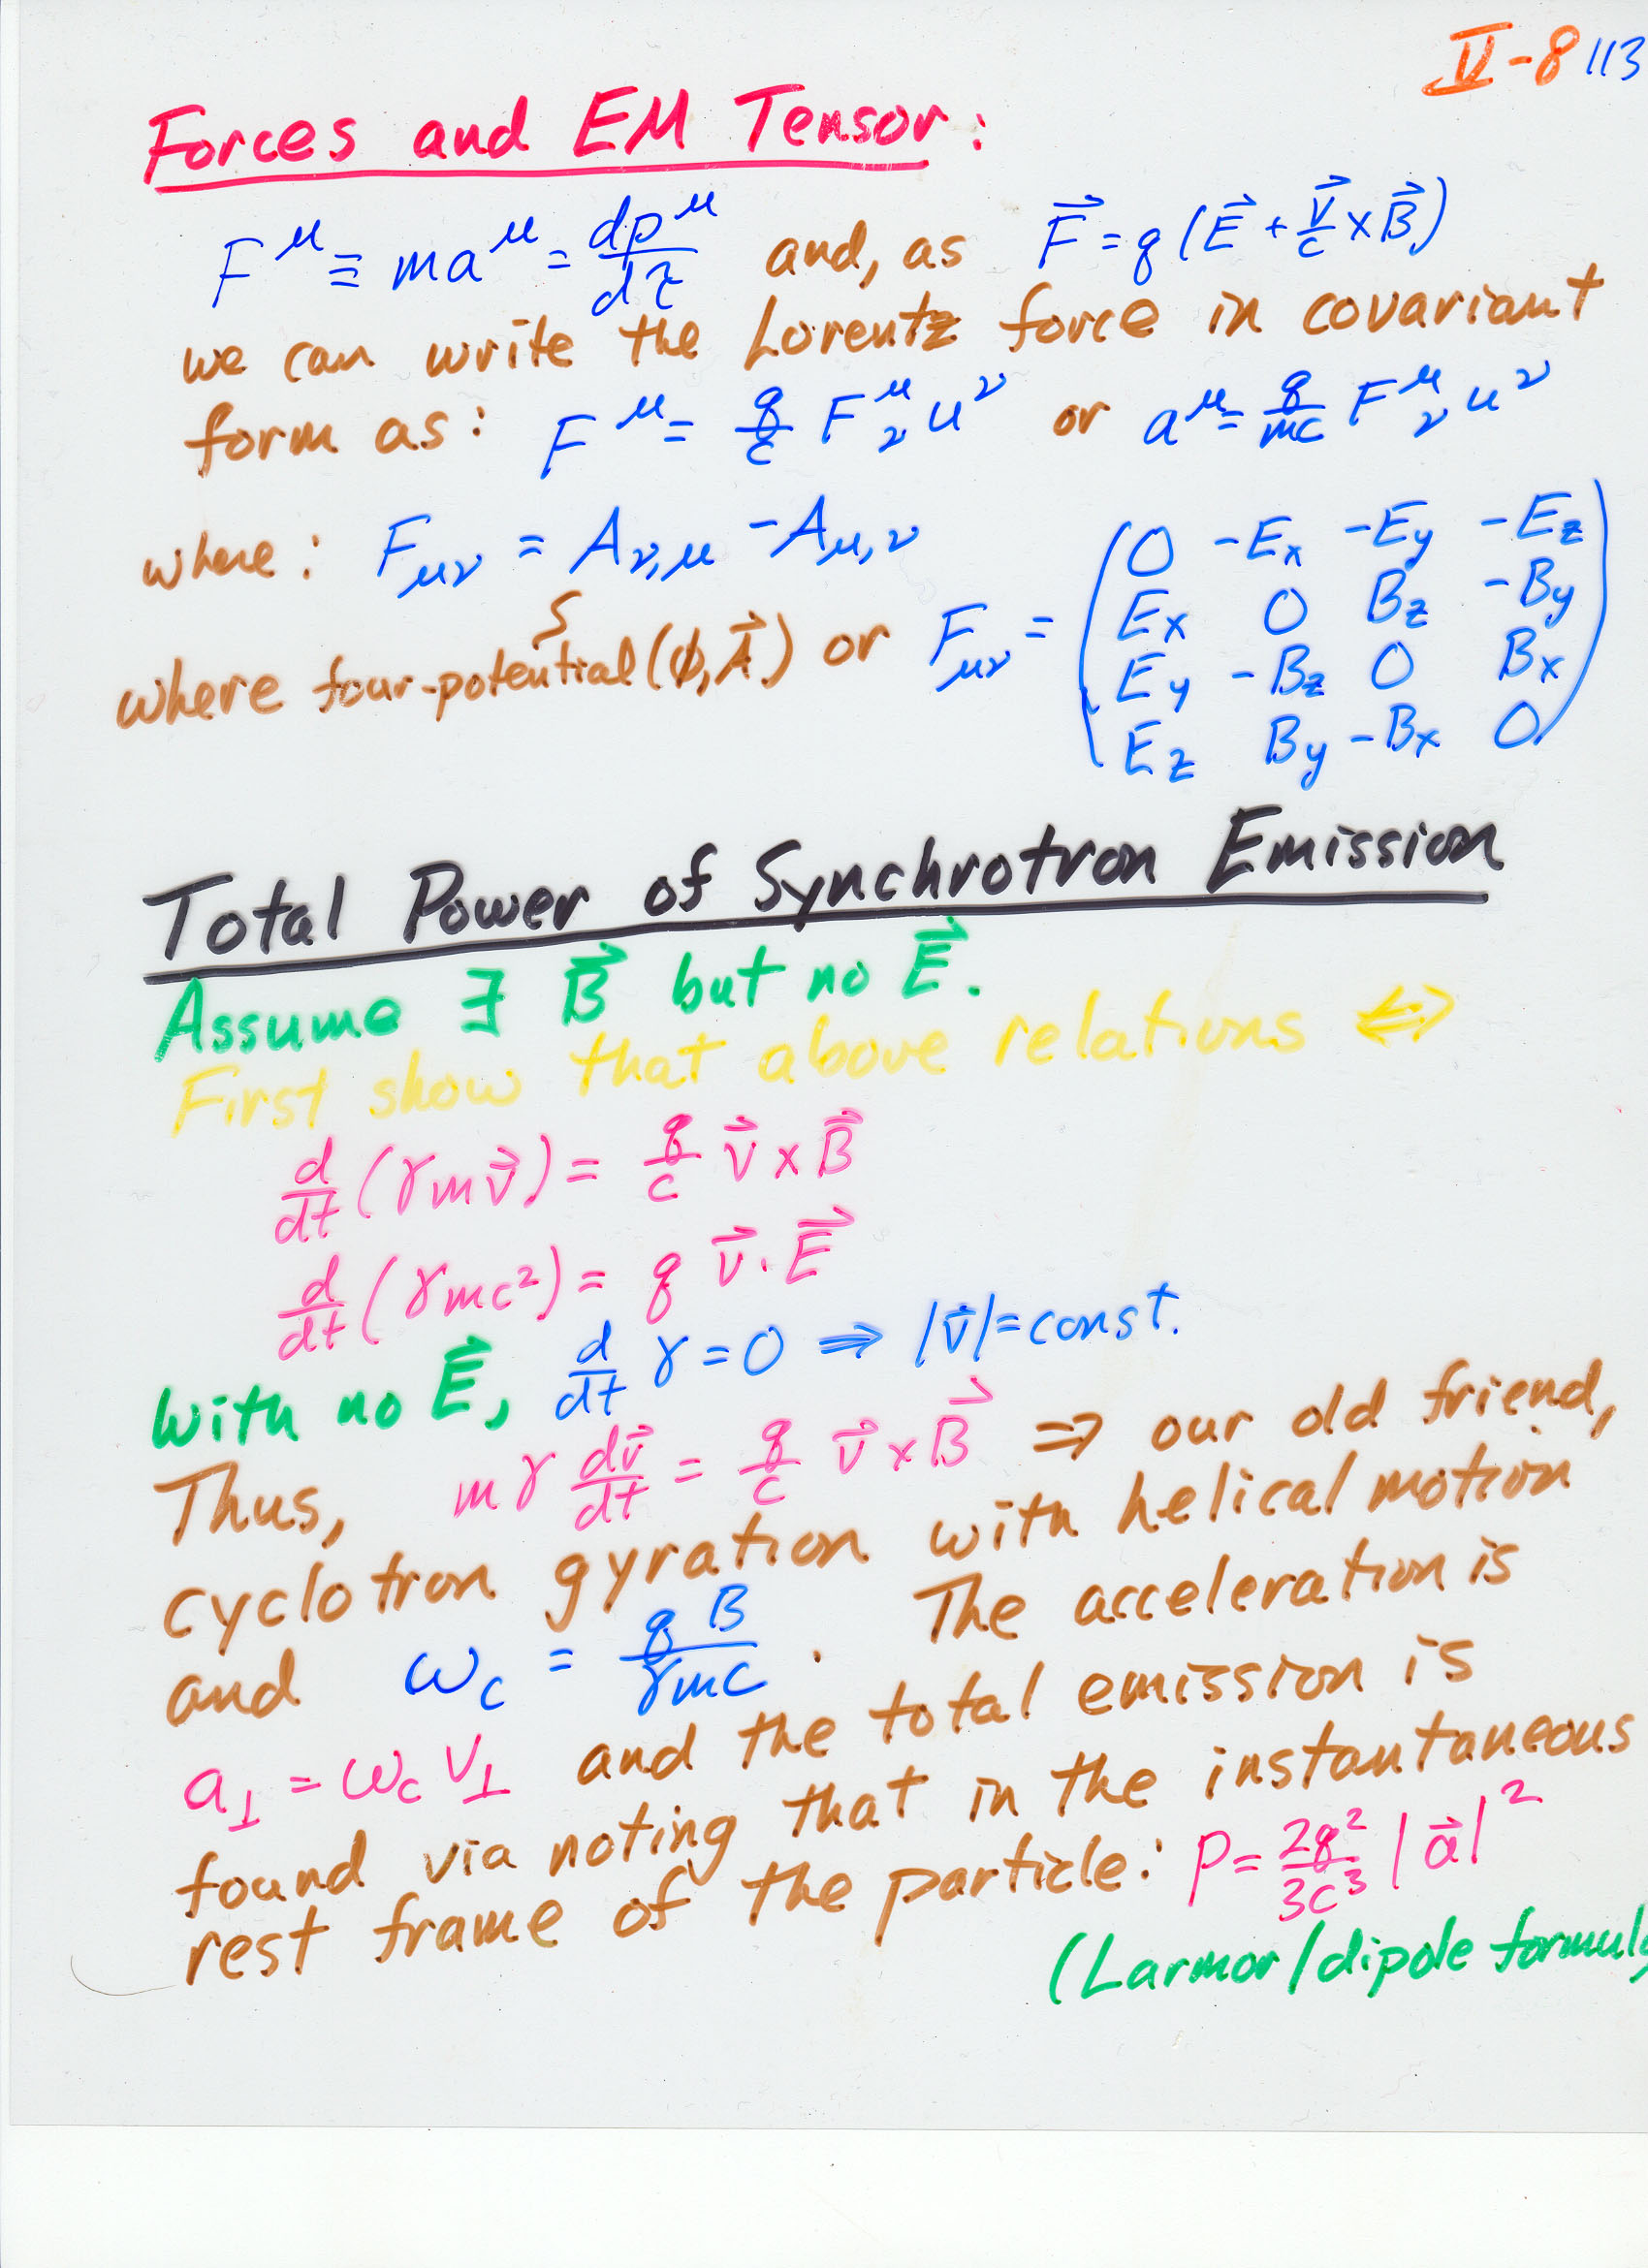 V-8 113
Forces and EM Tensor:
F^μ ≡ ma^μ = dp^μ/dτ and, as F⃗ = q(E⃗ + v⃗/c × B⃗)
we can write the Lorentz force in covariant
form as: F^μ = q/c F^μ_ν u^ν or a^μ = q/mc F^μ_ν u^ν
where: F_μν = A_ν,μ − A_μ,ν
where four-potential (ϕ, A⃗) or F_μν =
0 −Ex −Ey −Ez
Ex 0 Bz −By
Ey −Bz 0 Bx
Ez By −Bx 0
Total Power of Synchrotron Emission
Assume ∃ B⃗ but no E⃗.
First show that above relations ⇔
d/dt (γmv⃗) = q/c v⃗ × B⃗
d/dt (γmc²) = q v⃗ · E⃗
With no E⃗, d/dt γ = 0 ⇒ |v⃗| = const.
Thus, mγ dv⃗/dt = q/c v⃗ × B⃗ ⇒ our old friend,
cyclotron gyration with helical motion
and ω_c = qB/γmc . The acceleration is
a_⊥ = ω_c v_⊥ and the total emission is
found via noting that in the instantaneous
rest frame of the particle: P = 2q²/3c³ |a⃗|²
(Larmor/dipole formula